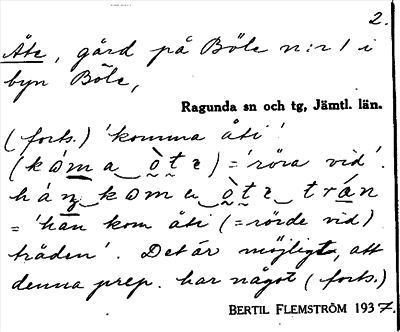 2.
Åte, gård på Böle n:r 1 i
byn Böle,
Ragunda sn och tg, Jämtl. län.
(forts.) 'komma åti'
(kóma òte) = 'röra vid'.
hán kom u òte trán
= 'han kom åti (= rörde vid)
tråden'. Det är möjligt, att
denna prep. har något (forts.)
BERTIL FLEMSTRÖM 1937.